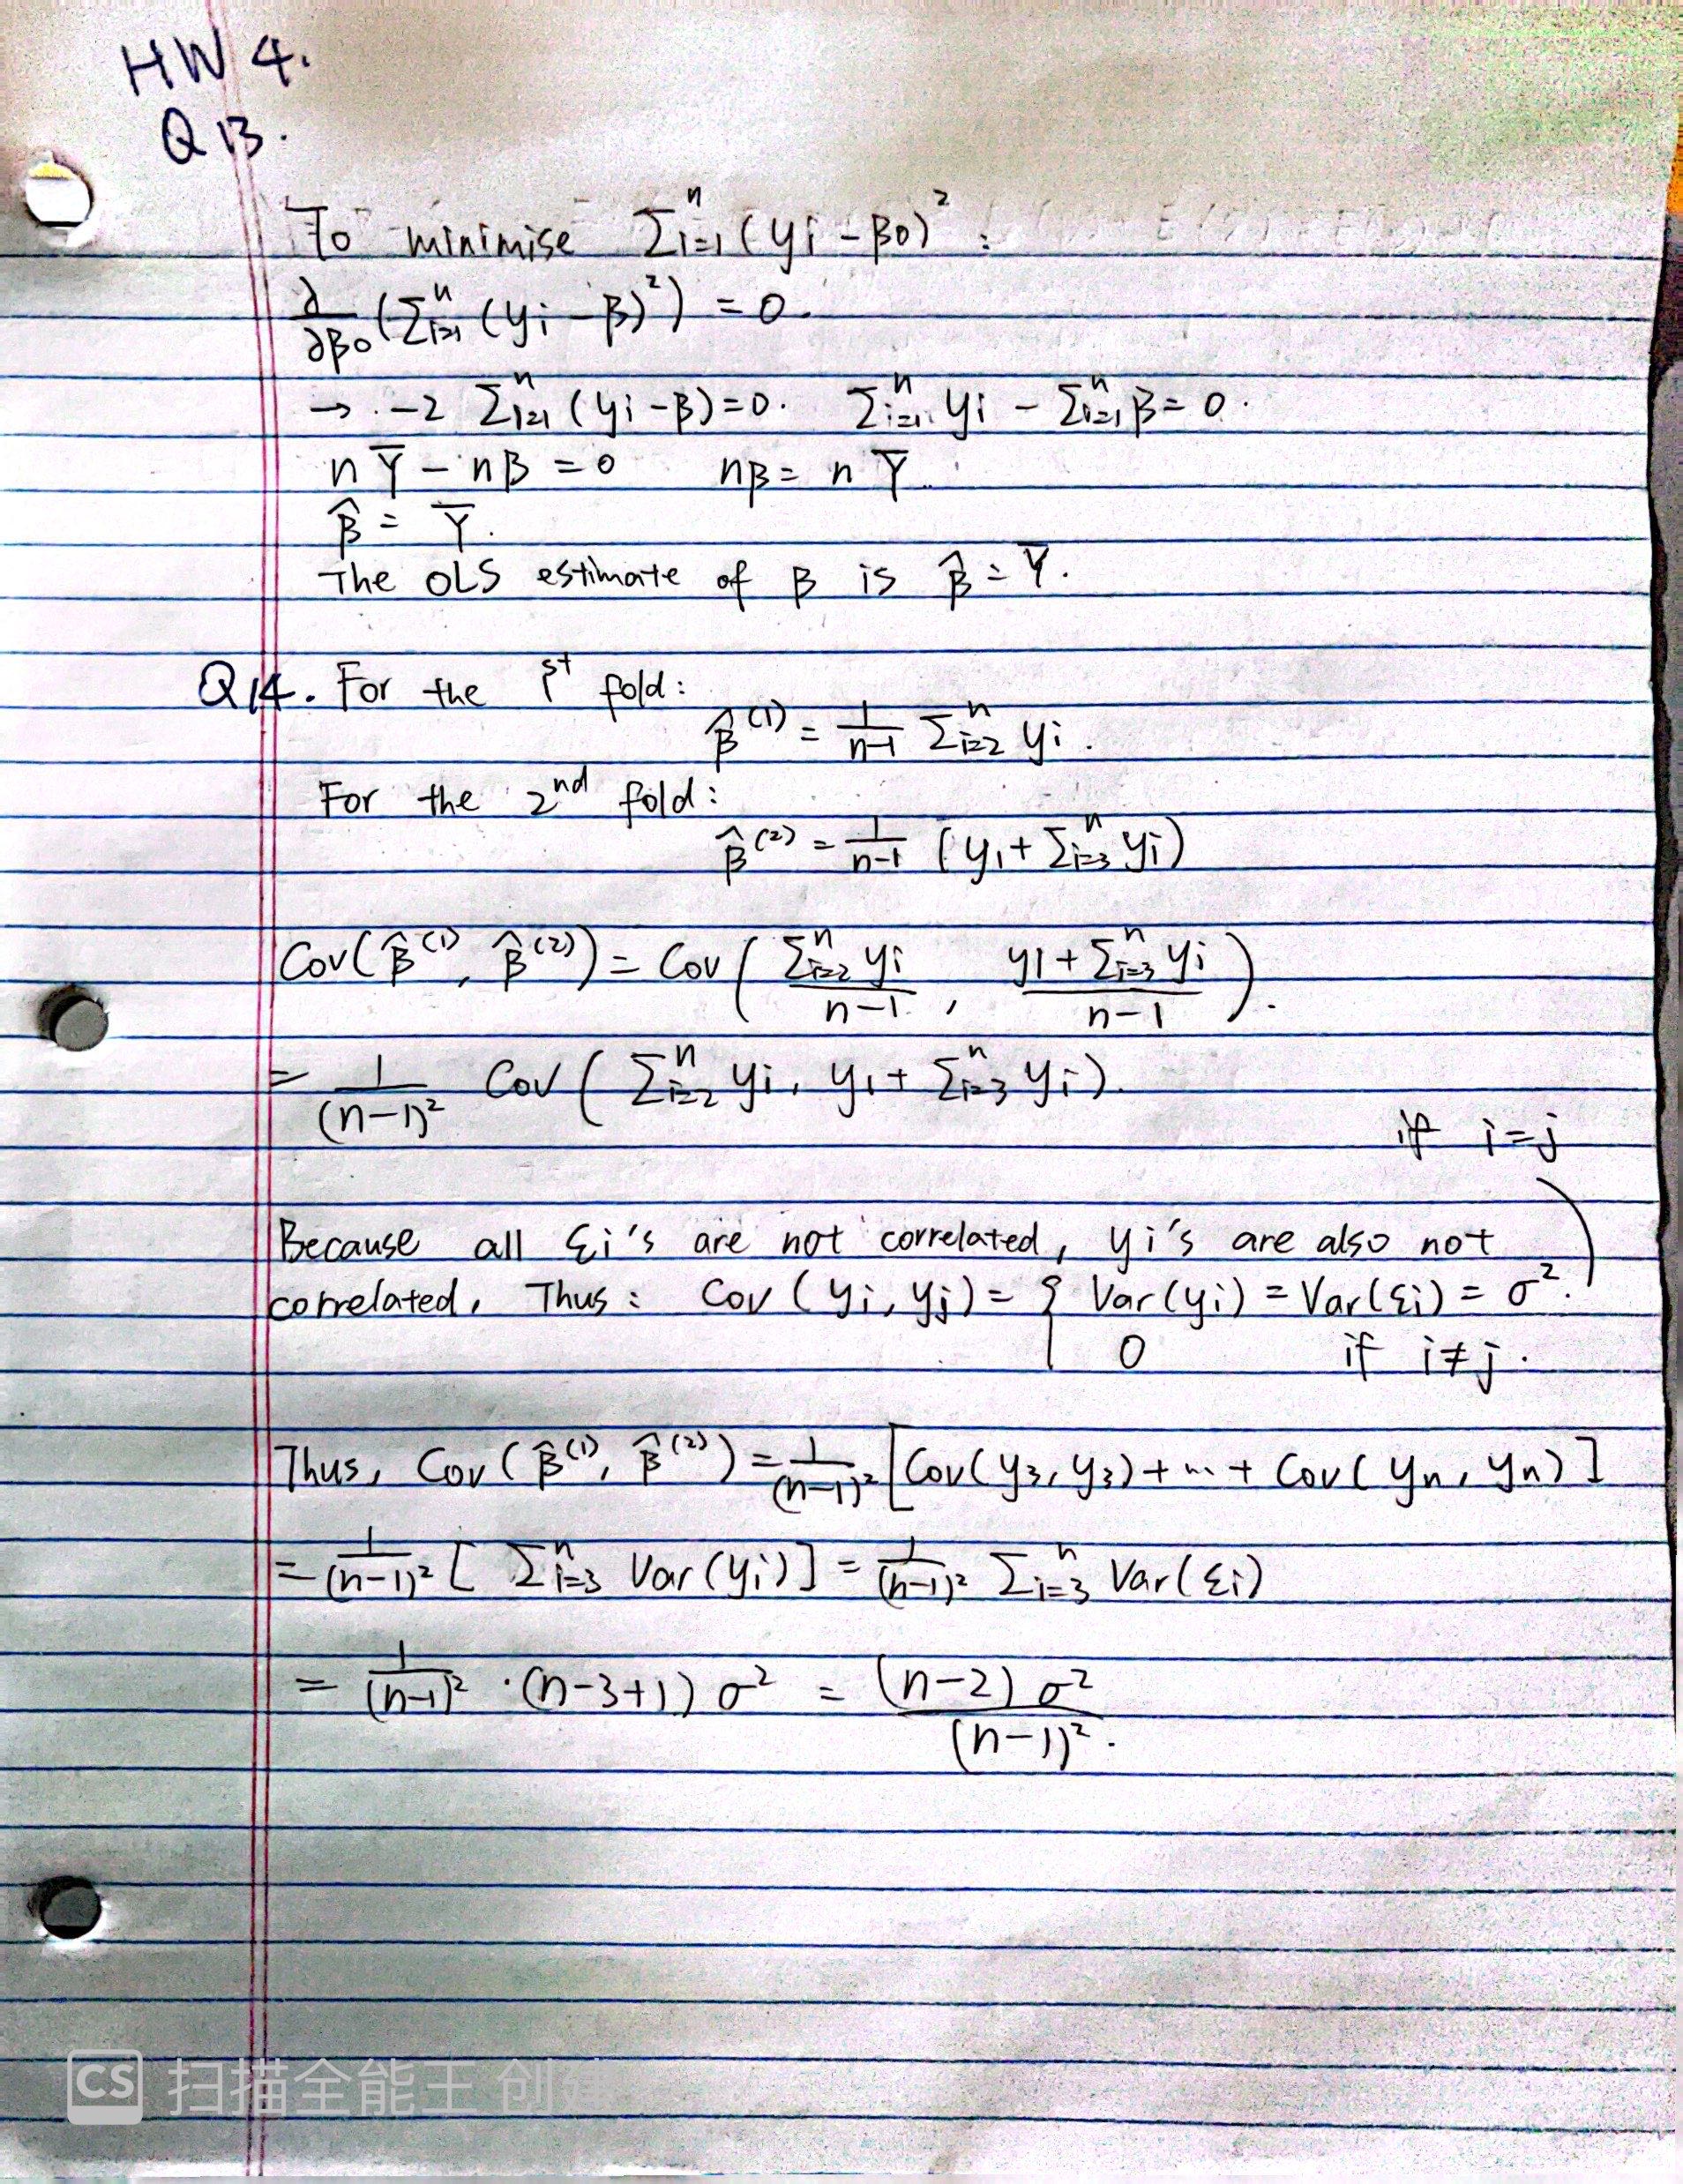 HW 4.
Q 13.
To minimise Σᵢ₌₁ⁿ (yi - β0)² :
∂/∂β0 (Σᵢ₌₁ⁿ (yi - β)²) = 0.
→ -2 Σᵢ₌₁ⁿ (yi - β) = 0. Σᵢ₌₁ⁿ yi - Σᵢ₌₁ⁿ β = 0.
n Ȳ - nβ = 0 nβ = n Ȳ.
β̂ = Ȳ.
The OLS estimate of β is β̂ = Ȳ.
Q 14. For the 1st fold:
β̂⁽¹⁾ = 1/(n-1) Σᵢ₌₂ⁿ yi.
For the 2nd fold:
β̂⁽²⁾ = 1/(n-1) (y₁ + Σᵢ₌₃ⁿ yi)
Cov(β̂⁽¹⁾, β̂⁽²⁾) = Cov( Σᵢ₌₂ⁿ yi / (n-1), (y1 + Σᵢ₌₃ⁿ yi) / (n-1) ).
= 1/(n-1)² Cov( Σᵢ₌₂ⁿ yi, y₁ + Σᵢ₌₃ⁿ yi).
if i=j
Because all εi's are not correlated, yi's are also not
correlated. Thus: Cov (yi, yj) = { Var(yi) = Var(εi) = σ².
0 if i≠j.
Thus, Cov(β̂⁽¹⁾, β̂⁽²⁾) = 1/(n-1)² [Cov(y₃, y₃) + ... + Cov(yn, yn)]
= 1/(n-1)² [ Σᵢ₌₃ⁿ Var(yi)] = 1/(n-1)² Σᵢ₌₃ⁿ Var(εi)
= 1/(n-1)² · (n-3+1) σ² = (n-2) σ² / (n-1)².
CS 扫描全能王 创建